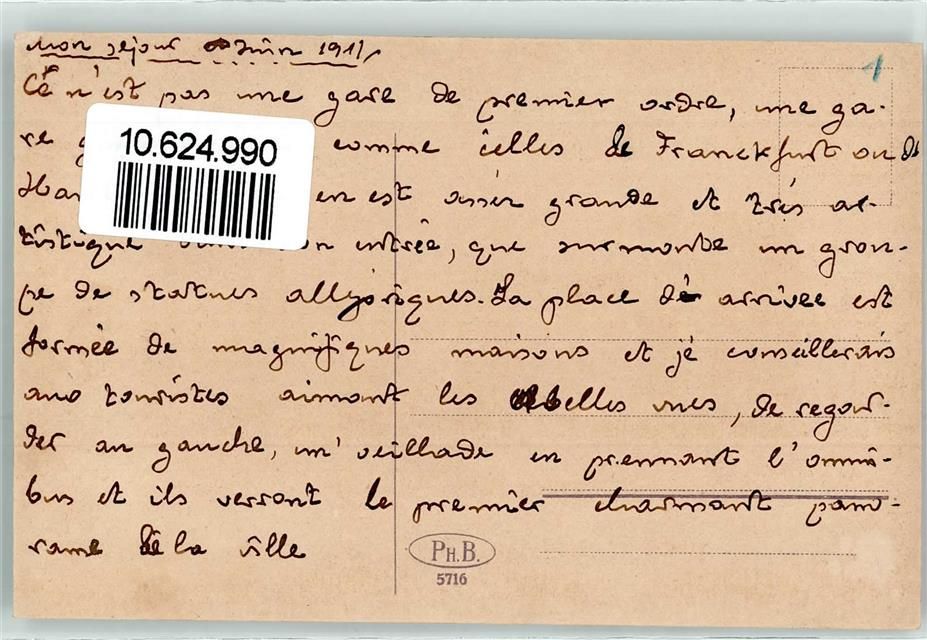 Mon sejour Juin 1911
1
Cé n'est pas une gare de premier ordre, une ga-
re comme celles de Franckfurt ou de
10.624.990
Han en est assez grande et très ar-
tistique son entrée, que surmonte un grou-
pe de statues allegoriques. La place dé arrivee est
formée de magnifiques maisons et jé conseillerais
aux touristes aimant les belles vues, de regar-
der au gauche, en prennant l'omni-
bus et ils verront le premier charmant pano-
rame de la ville
PH.B.
5716